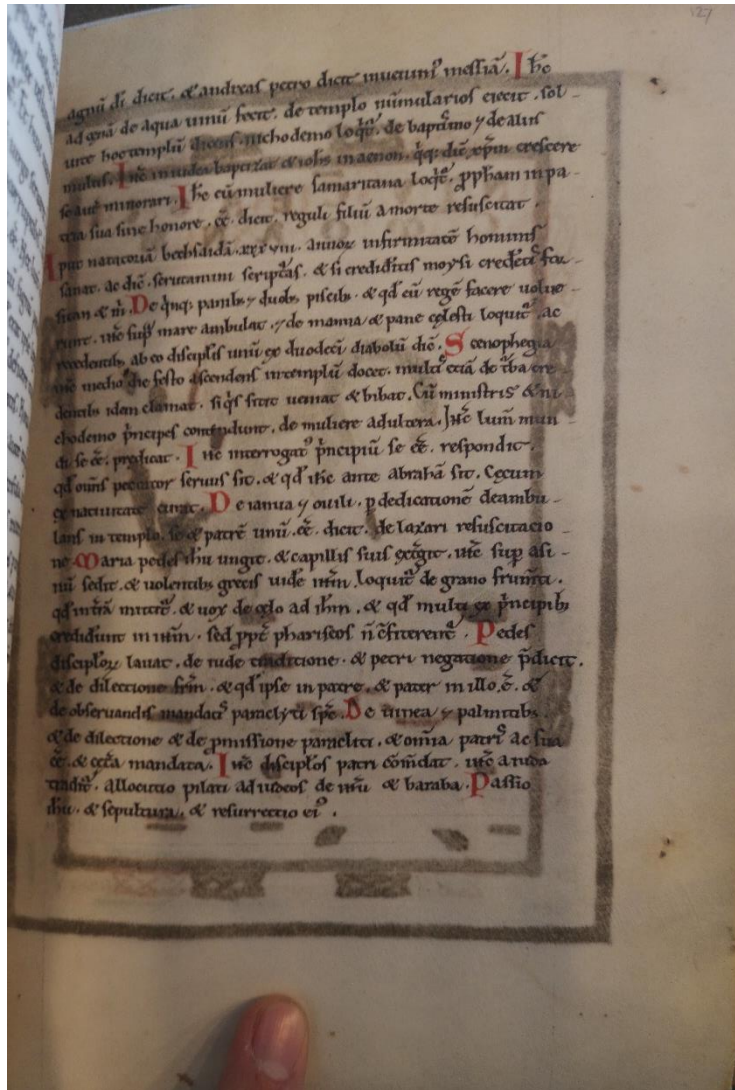 127
agnū dī dicit. & andreas petro dicit inuenim᷒ messiā. Ihc
ad cenā de aqua uinū fecit. de templo nūmularios eiecit. sol-
uite hoc templū dicens. nichodemo loqt̄. de baptismo ⁊ de aliis
multis. Ihc in iudea baptizat & iohs in aenon. qq; diē xpm crescere
se autē minorari. Ihc cū muliere samaritana loqt̄. ppham in pa-
tria sua sine honore. ēē dicit. reguli filiū a morte resuscitat.
Aput natatoriā bethsaidā. xxxviii. annoꝝ infirmitatē hominis
sanat. ac diē. scrutamini scripťas. & si crediditis moysi credeťis for-
sitan & m̄. De qnq; panibꝫ ⁊ duobꝫ piscibꝫ. & qd eū regē facere uolue-
runt. ihc sup mare ambulat. ⁊ de manna & pane celesti loquit᷒ ac
recedentibꝫ ab eo discipťis unū ex duodeci diabolū diē. Scenophegia
ihc medio die festo ascendens in templū docet. multi etiā de tba cre-
dentibꝫ idem clamat. si qs sitit ueniat & bibat. Cū ministris & ni-
chodemo pncipes contendunt. de muliere adultera. Ihc lumn mun-
di se ēē predicat. Ihc interrogat᷒ pncipiū se ēē. respondit.
qd omis peccator seruus sit. & qd ihc ante abrahā sit. Cecum
ex natiuitate curat. De ianua ⁊ ouili. p dedicationē deambu-
lans in templo. se & patrē unū. ēē. dicit. de lazari resuscitacio-
ne. Maria pedes ihu ungit. & capillis suis extgit. ihc sup asi-
nū sedit. & uolentibꝫ grecis uide ihm. loquit᷒ de grano frumti.
qd in trā mittit᷒. & uox de celo ad ihm. & qd multi ex pncipibꝫ
crediderunt in ihm. sed ppt phariseos ñ cfiterent᷒. Pedes
disciploꝝ lauat. de iude traditione. & petri negatione pdicit.
& de dilectione frm. & qd ipse in patre. & pater in illo. ē. &
de obseruandis mandatis paraclyti spc. De uinea ⁊ palmitibꝫ.
& de dilectione & de pmissione paracliti. & omia patris ac sua
ēē. & cetа mandata. Ihc disciplos patri cōmdat. ihc a iuda
tradit᷒. allocutio pilati ad iudeos de ihu & baraba. Passio
ihu. & sepultura. & resurrectio ei᷒.